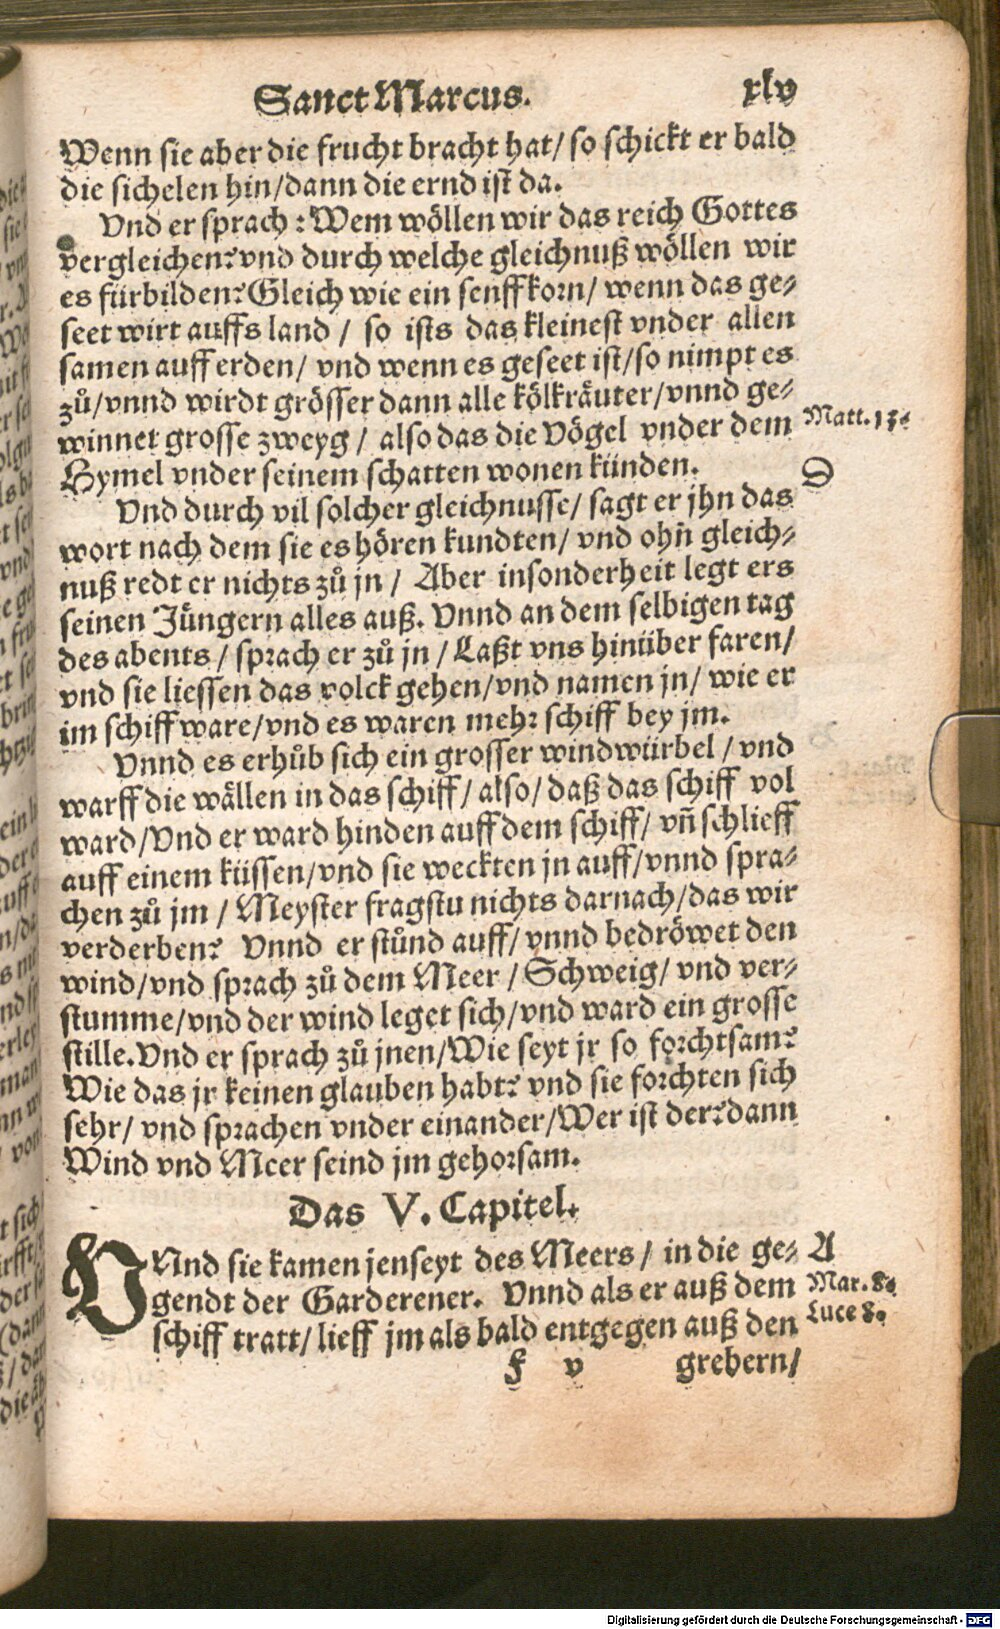 Sanct Marcus. xlv
Wenn sie aber die frucht bracht hat/ so schickt er bald
die sichelen hin/dann die ernd ist da.
Vnd er sprach : Wem wöllen wir das reich Gottes
vergleichen? vnd durch welche gleichnuß wöllen wir
es fürbilden? Gleich wie ein senffkorn/ wenn das ge-
seet wirt auffs land / so ists das kleinest vnder allen
samen auff erden/ vnd wenn es geseet ist/so nimpt es
zů/vnnd wirdt grösser dann alle kölkräuter/vnnd ge-
winnet grosse zweyg / also das die Vögel vnder dem
Hymel vnder seinem schatten wonen künden.
Matt.13.
D
Vnd durch vil solcher gleichnusse/ sagt er jhn das
wort nach dem sie es hören kundten/ vnd ohñ gleich-
nuß redt er nichts zů jn / Aber insonderheit legt ers
seinen Jüngern alles auß. Vnnd an dem selbigen tag
des abents / sprach er zů jn / Laßt vns hinüber faren/
vnd sie liessen das volck gehen/vnd namen jn/ wie er
im schiff ware/vnd es waren mehr schiff bey jm.
Vnnd es erhůb sich ein grosser windwürbel / vnd
warff die wällen in das schiff/ also/ daß das schiff vol
ward/Vnd er ward hinden auff dem schiff/ vñ schlieff
auff einem küssen/vnd sie weckten jn auff/vnnd spra-
chen zů jm / Meyster fragstu nichts darnach/das wir
verderben? Vnnd er stůnd auff/ vnnd bedröwet den
wind/vnd sprach zů dem Meer / Schweig/ vnd ver-
stumme/vnd der wind leget sich/vnd ward ein grosse
stille. Vnd er sprach zů jnen/Wie seyt jr so forchtsam?
Wie das jr keinen glauben habt? vnd sie forchten sich
sehr/ vnd sprachen vnder einander/Wer ist der? dann
Wind vnd Meer seind jm gehorsam.
Das V. Capitel.
VNnd sie kamen jenseyt des Meers/ in die ge-
gendt der Garderener. Vnnd als er auß dem
schiff tratt/ lieff jm als bald entgegen auß den
A
Mar. 8.
Luce 8.
f v grebern/
Digitalisierung gefördert durch die Deutsche Forschungsgemeinschaft - DFG